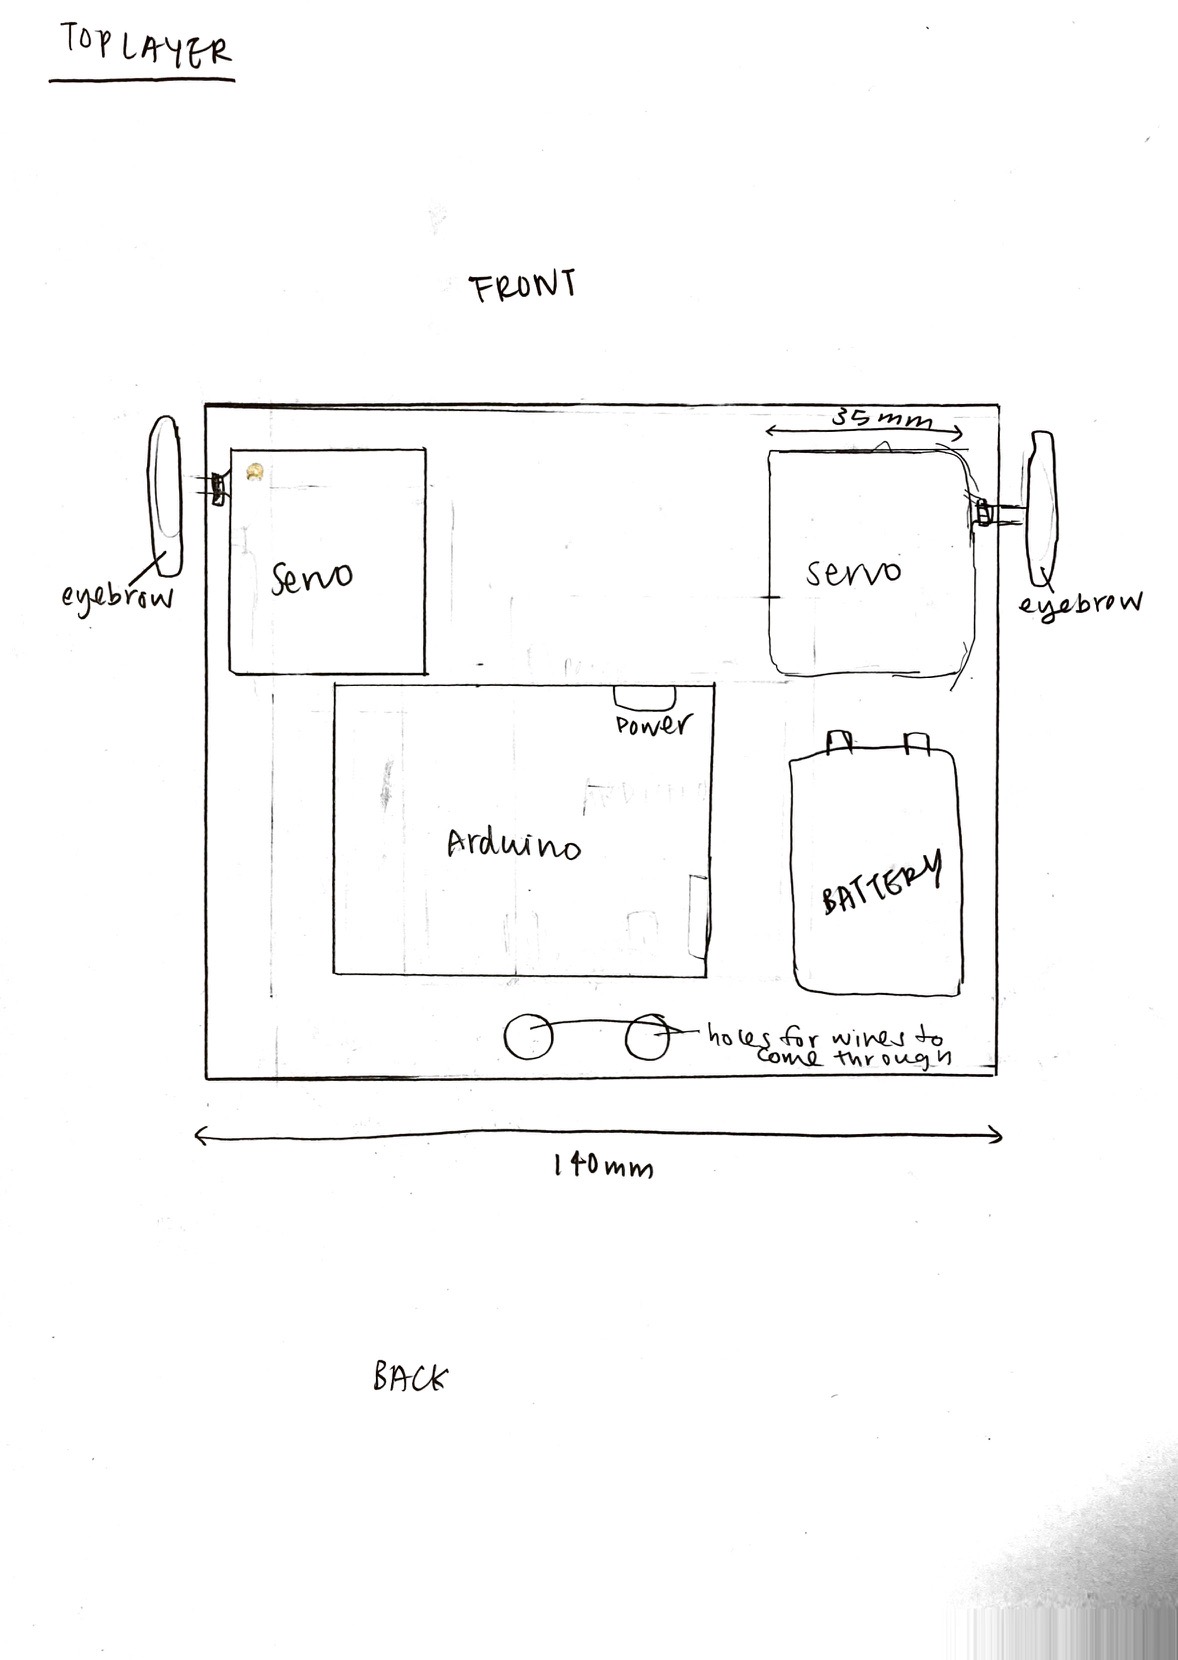 TOP LAYER
FRONT
35mm
servo
servo
eyebrow
eyebrow
Power
Arduino
BATTERY
holes for wires to
come through
140mm
BACK